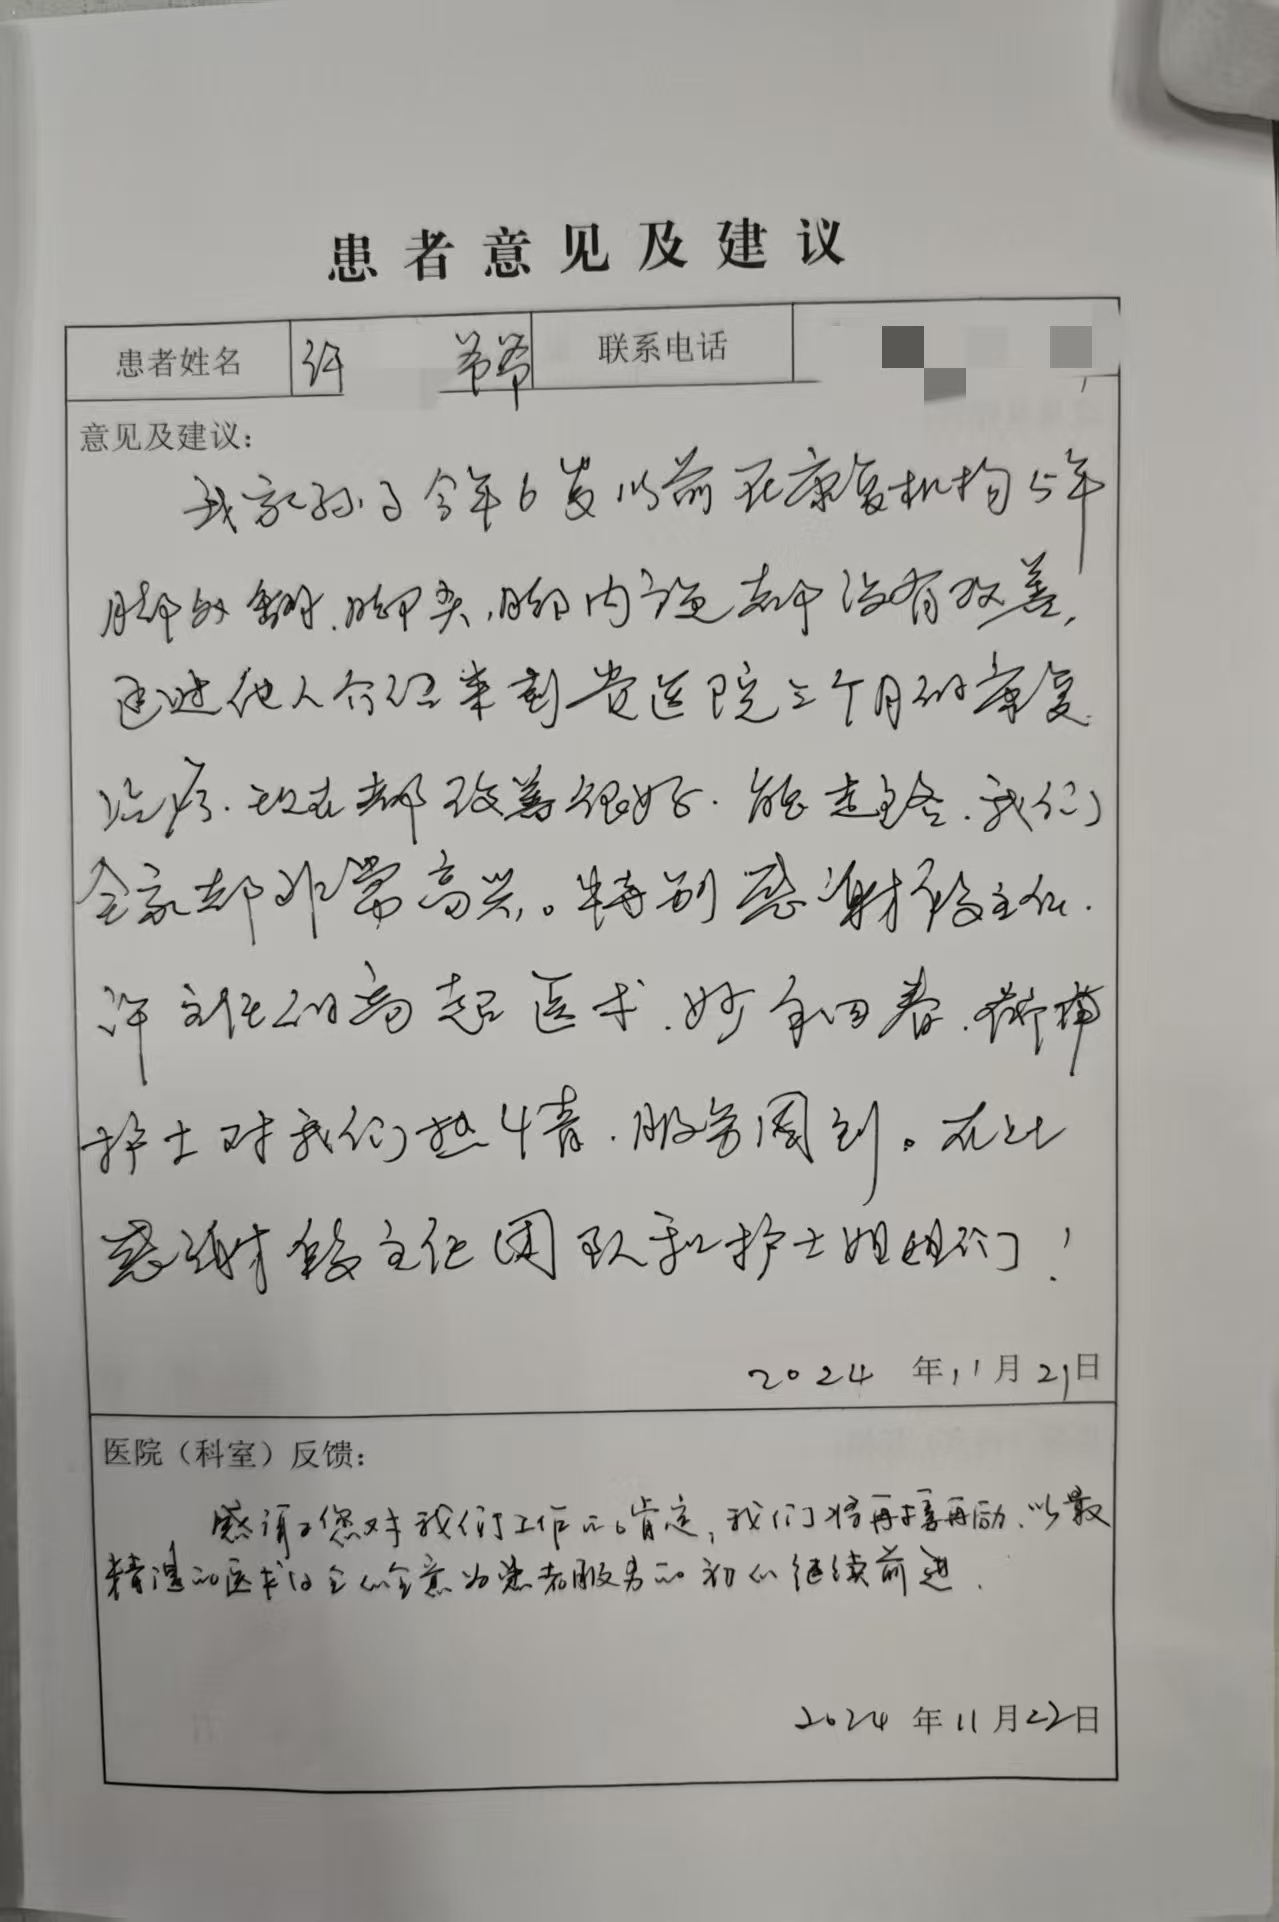 患者意见及建议
患者姓名 许 爷爷 联系电话
意见及建议：
我家孙子今年6岁以前在康复机构5年
脚外翻、脚尖,脚内旋都没有改善,
通过他人介绍来到贵医院三个月的康复
治疗.现在都改善很好.能走路.我们
全家都非常高兴。特别感谢主任.
许主任的高超医术.妙手回春.
护士对我们热情.服务周到。在此
感谢主任团队和护士姐姐们!
2024 年11月21日
医院（科室）反馈：
感谢您对我们工作的肯定,我们将再接再励.以最
精湛的医术及全心全意为患者服务的初心继续前进.
2024 年11月22日